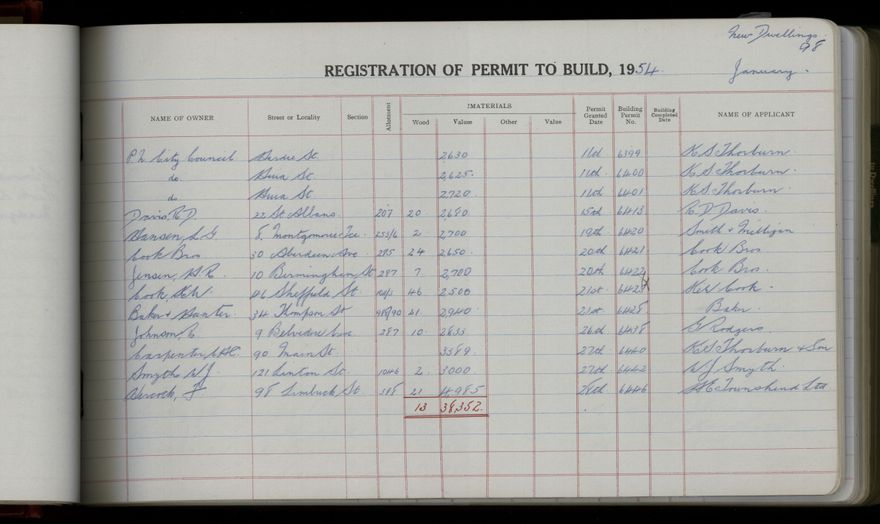 New Dwellings
98
REGISTRATION OF PERMIT TO BUILD, 1954.
January.
NAME OF OWNER Street or Locality Section Allotment MATERIALS Permit Granted Date Building Permit No. Building Completed Date NAME OF APPLICANT
Wood Value Other Value
P.N. City Council St. 2630 11th 6399 K S Thorburn.
do. St 2,625. 11th 6400 K S Thorburn.
do St 2,720. 11th 6401 K S Thorburn
Davis, C D. 22 St Albans. 207 20 2,690 15th 6413 C. D Davis.
Hansen, L G. 8, Montgomerie Tce. 255/6 2 2,700 19th 6420 Smith & Milligan
Cook Bros 30 Aberdeen Ave. 285 24 2650. 20th 6421 Cook Bros
Jensen, 10 Birmingham St 287 7 2,700 20th 6422 Cook Bros.
Cook, K W. 46 Sheffield St 46 2500 21st 6425 K W Cook.
Baker & 34 Thompson St 21 2,940 21st 6428 Baker.
Johnson, C. 9 Belvedere Cres. 287 10 2833 26th 6438 G Rodgers.
Carpenter, 90 Main St. 3389. 27th 6440 K S Thorburn & Son
Smythe N J. 121 Linton St. 1046 2 3000 27th 6442 N J Smyth.
98 St 388 21 4,985 28th 6446 Townshend Ltd
13 38,352.